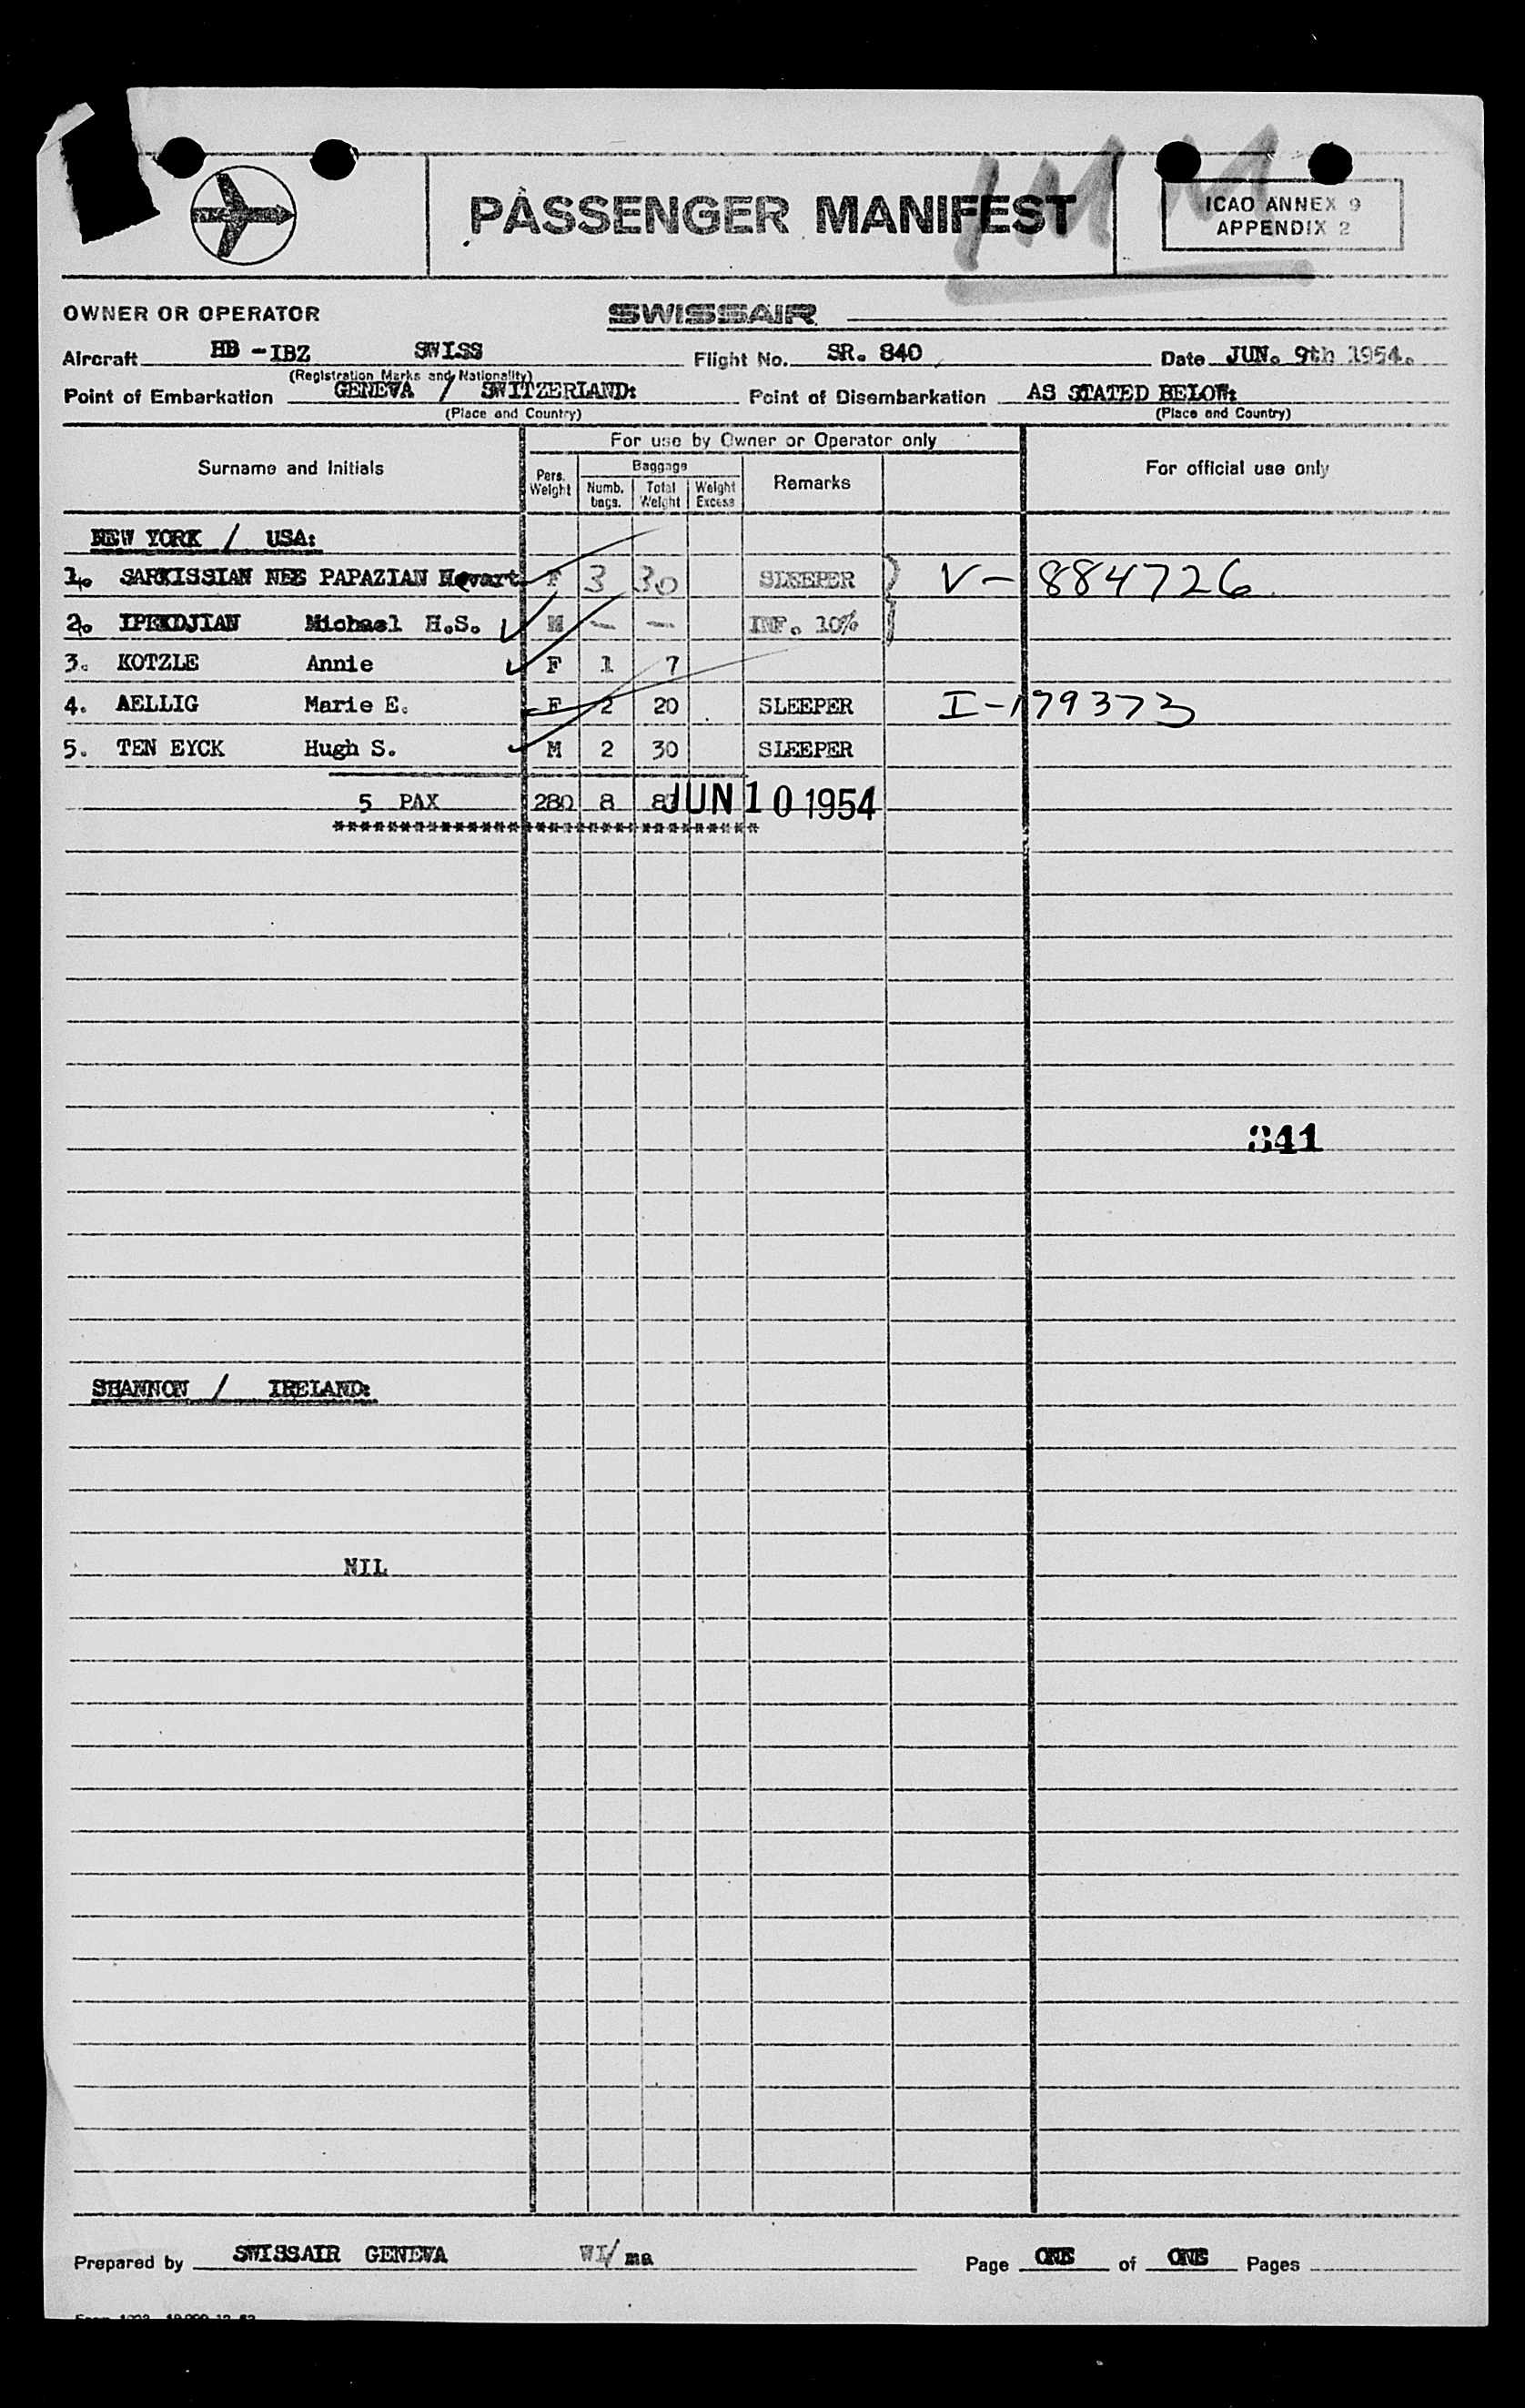 PASSENGER MANIFEST
IMM
ICAO ANNEX 9
APPENDIX 2
OWNER OR OPERATOR SWISSAIR
Aircraft HB - IBZ SWISS Flight No. SR. 840 Date JUN. 9th 1954.
(Registration Marks and Nationality)
Point of Embarkation GENEVA / SWITZERLAND: Point of Disembarkation AS STATED BELOW:
(Place and Country) (Place and Country)
For use by Owner or Operator only
Surname and Initials Pers. Weight Baggage Remarks For official use only
Numb. bags. Total Weight Weight Excess
NEW YORK / USA:
1. SARKISSIAN NEE PAPAZIAN Hevart F 3 30 SLEEPER V-884726
2. IPEKDJIAN Michael H.S. M - - INF. 10%
3. KOTZLE Annie F 1 7
4. AELLIG Marie E. F 2 20 SLEEPER I-179373
5. TEN EYCK Hugh S. M 2 30 SLEEPER
5 PAX 280 8 87 JUN 10 1954
341
SHANNON / IRELAND:
NIL
Prepared by SWISSAIR GENEVA WI/ma Page ONE of ONE Pages